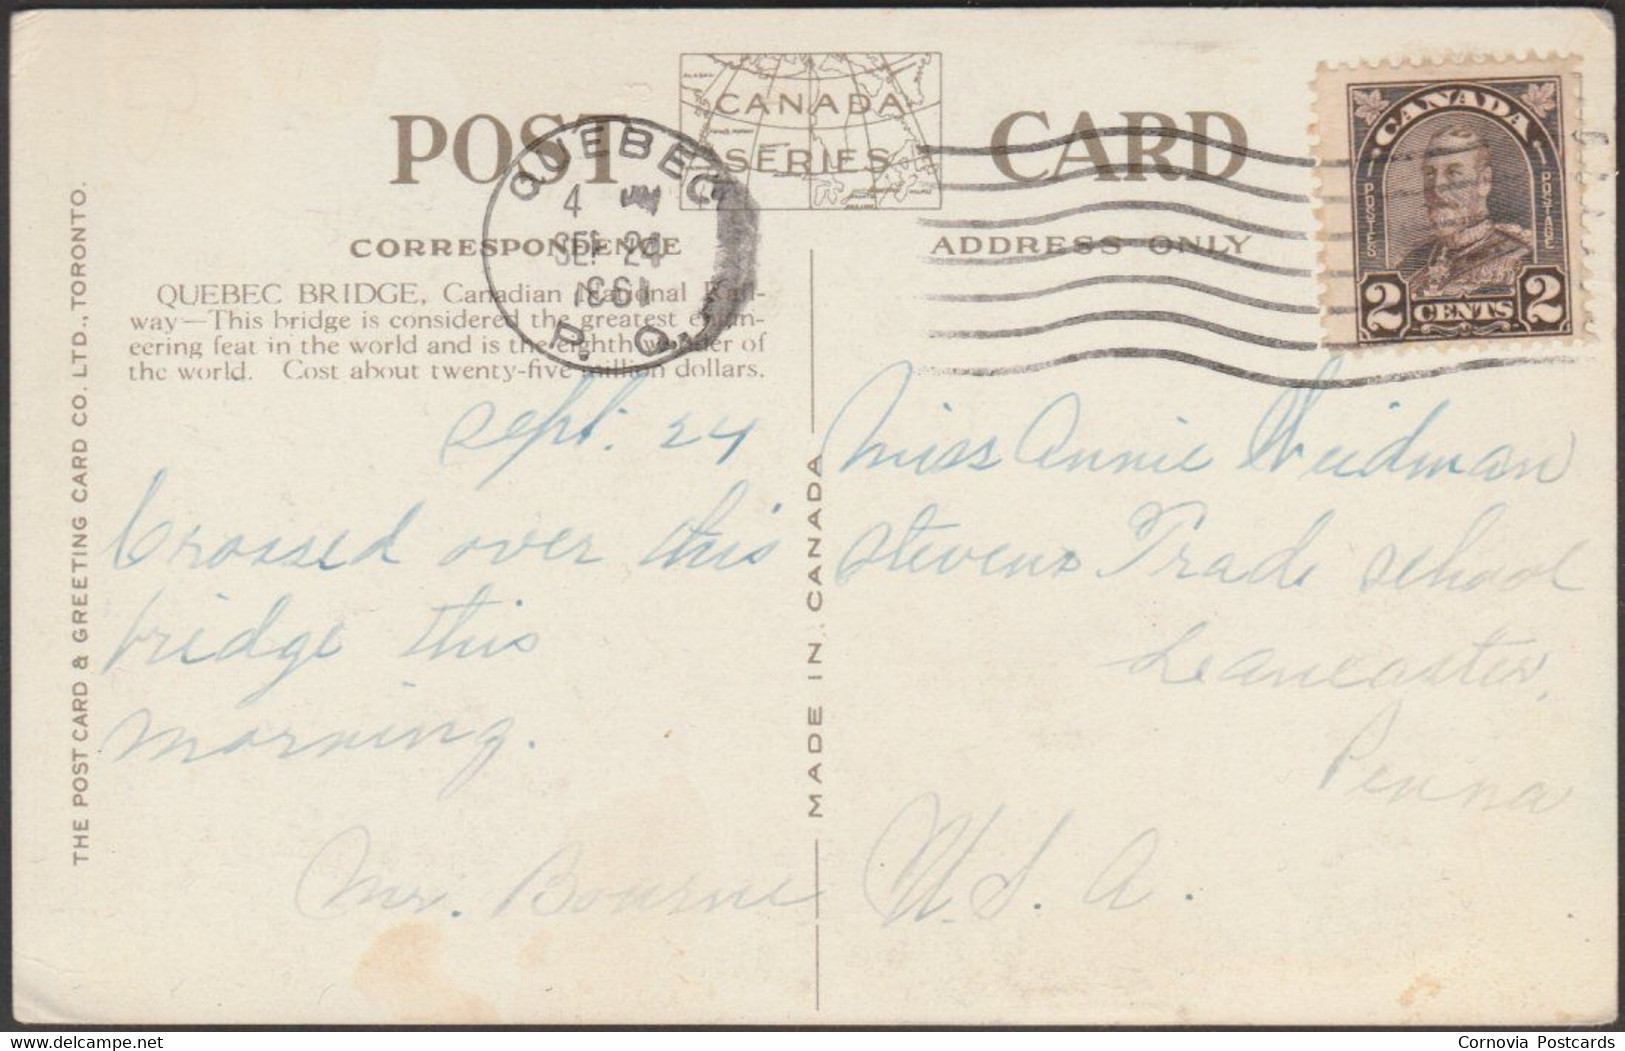 POST CARD
CANADA
SERIES
CORRESPONDENCE
ADDRESS ONLY
QUEBEC BRIDGE, Canadian National Rail-
way—This bridge is considered the greatest engin-
eering feat in the world and is the eighth wonder of
the world. Cost about twenty-five million dollars.
QUEBEC
4
SEP 24
1931
P. Q.
CANADA
POSTES
POSTAGE
2 CENTS 2
Sept. 24
Crossed over this
bridge this
morning.
Mr. Bourne
Miss Annie Weidman
Stevens Trade School
Lancaster,
Penna
U.S.A.
THE POST CARD & GREETING CARD CO. LTD., TORONTO.
MADE IN CANADA
delcampe.net
Cornovia Postcards